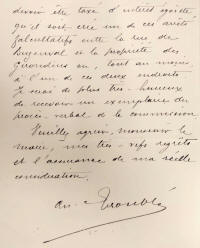 devoir être taxé d'intérêt égoïste
qu'il soit créé un de ces arrêts
facultatifs entre la rue de
Buzenval et la propriété des
Girondins ou, tout au moins,
à l'un de ces deux endroits.
Je serai de plus très heureux
de recevoir un exemplaire du
procès-verbal de la commission
Veuillez agréer, monsieur le
maire, mes très vifs regrets
et l'assurance de ma réelle
considération.